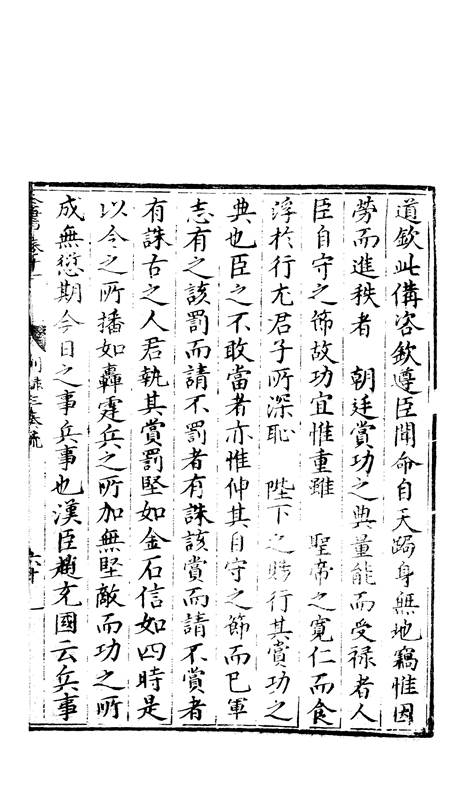 道欽此備咨欽遵臣聞命自天跼身無地竊惟因
勞而進秩者　朝廷賞功之典量能而受祿者人
臣自守之節故功宜惟重雖　聖帝之寬仁而食
浮於行尤君子所深恥　陛下之 行其賞功之
典也臣之不敢當者亦惟伸其自守之節而已軍
志有之該罰而請不罰者有誅該賞而請不賞者
有誅古之人君執其賞罰堅如金石信如四時是
以今之所播如轟霆兵之所加無堅敵而功之所
成無愆期今日之事兵事也漢臣趙充國云兵事